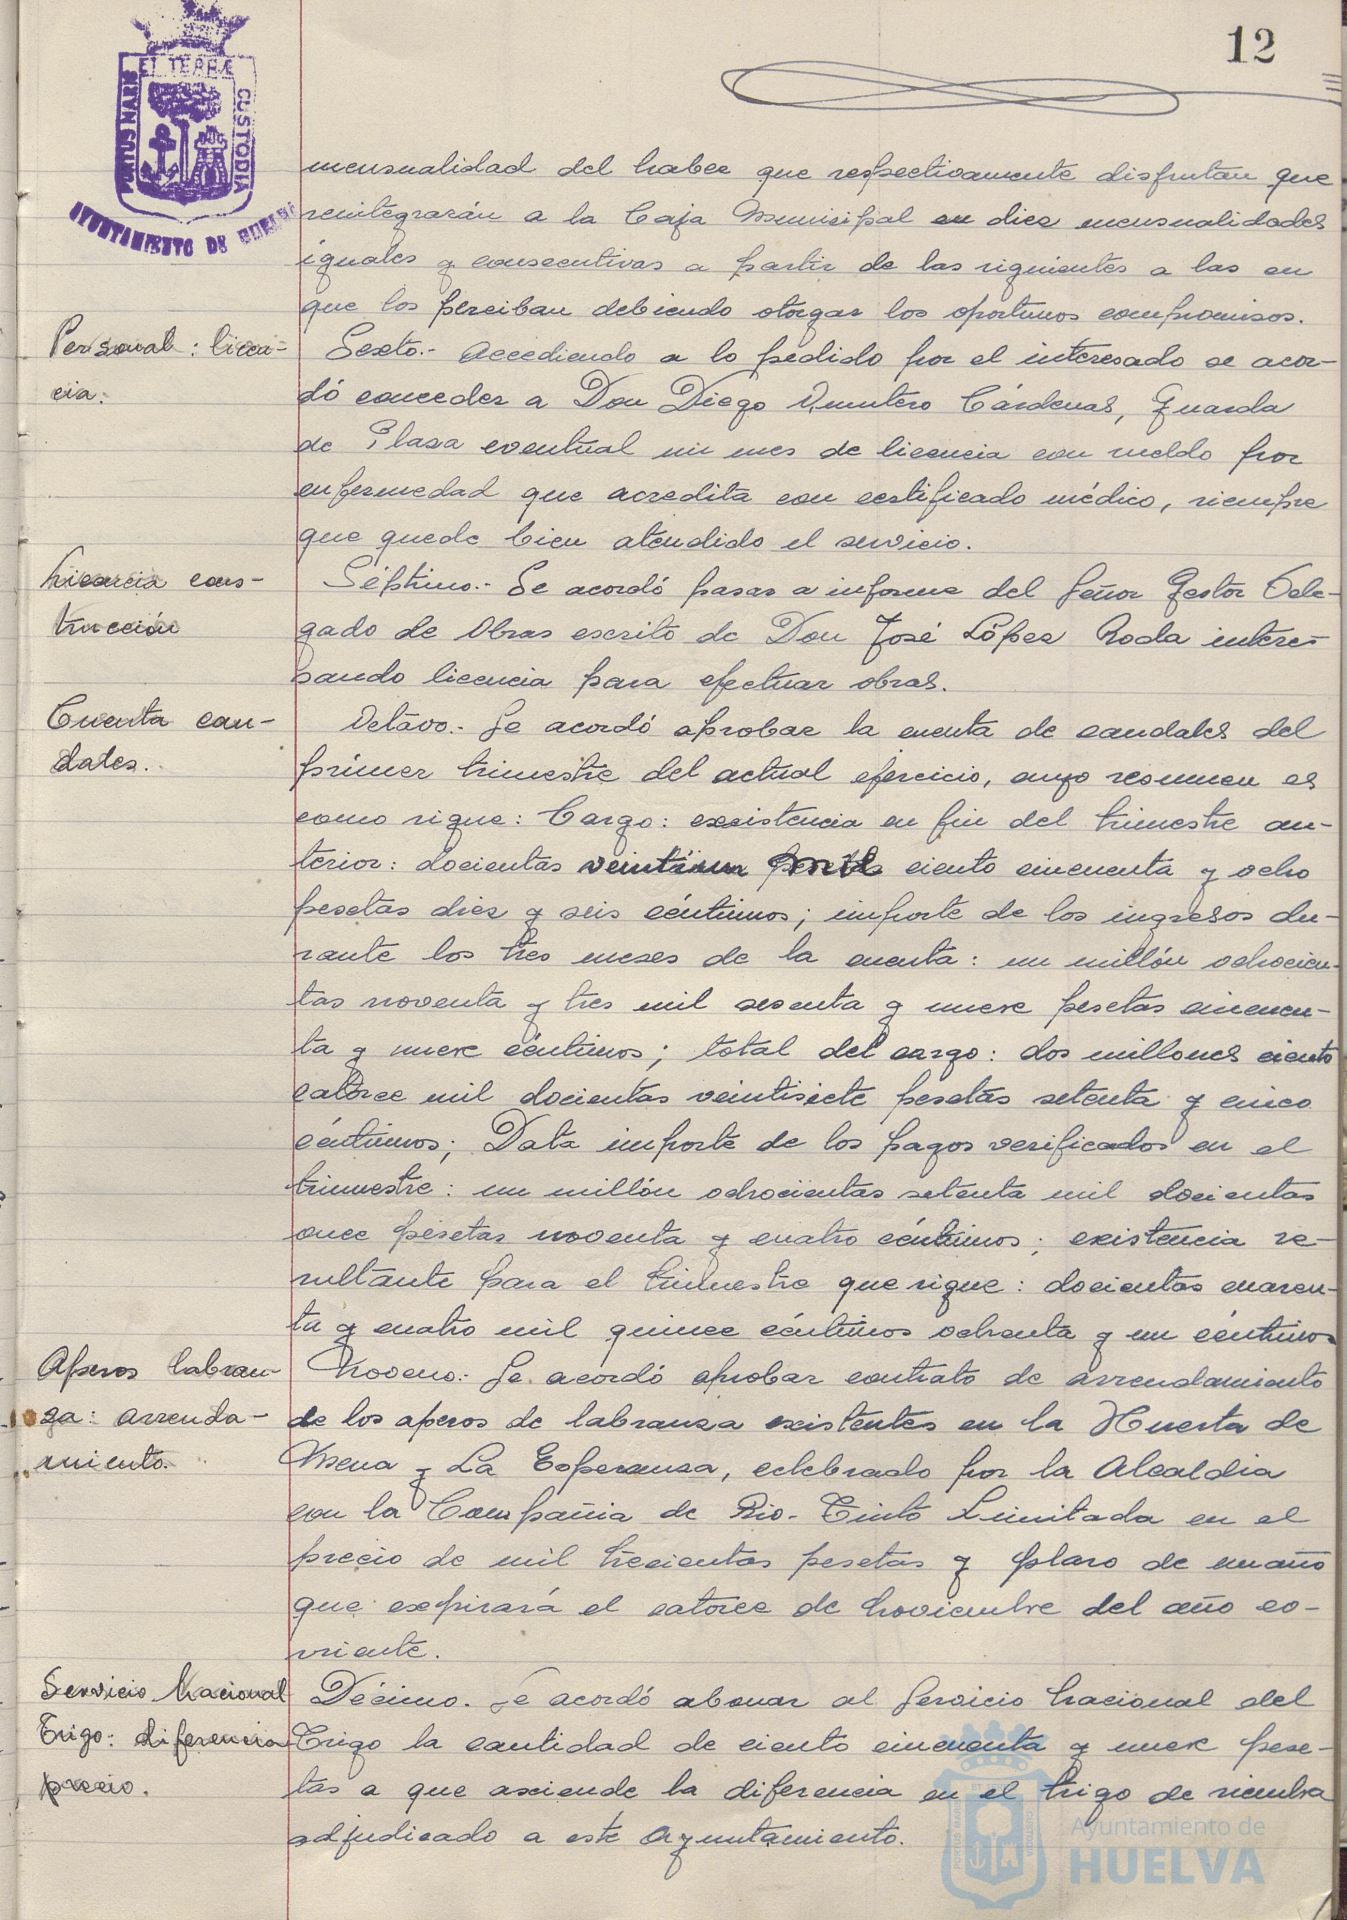 12
PORTUS MARIS ET TERRÆ CUSTODIA
AYUNTAMIENTO DE HUELVA
mensualidad del haber que respectivamente disfrutan que
reintegrarán a la Caja Municipal en diez mensualidades
iguales y consecutivas a partir de las siguientes a las en
que los perciban debiendo otorgar los oportunos compromisos.
Personal: licen-
cia.
Sexto.- Accediendo a lo pedido por el interesado se acor-
dó conceder a Don Diego Quintero Cárdenas, Guarda
de Plaza eventual un mes de licencia con sueldo por
enfermedad que acredita con certificado médico, siempre
que quede bien atendido el servicio.
Licencia cons-
trucción
Séptimo.- Se acordó pasar a informe del Señor Gestor Dele-
gado de Obras escrito de Don José López Roda intere-
sando licencia para efectuar obras.
Cuenta cau-
dales.
Octavo.- Se acordó aprobar la cuenta de caudales del
primer trimestre del actual ejercicio, cuyo resumen es
como sigue: Cargo: existencia en fin del trimestre an-
terior: docientas veintiun mil ciento cincuenta y ocho
pesetas diez y seis céntimos; importe de los ingresos du-
rante los tres meses de la cuenta: un millón ochocien-
tas noventa y tres mil sesenta y nueve pesetas cincuen-
ta y nueve céntimos; total del cargo: dos millones ciento
catorce mil docientas veintisiete pesetas setenta y cinco
céntimos; Data importe de los pagos verificados en el
trimestre: un millón ochocientas setenta mil docientas
once pesetas noventa y cuatro céntimos; existencia re-
sultante para el trimestre que sigue: docientas cuaren-
ta y cuatro mil quince céntimos ochenta y un céntimos
Aperos labran-
za: arrenda-
miento.
Noveno.- Se acordó aprobar contrato de arrendamiento
de los aperos de labranza existentes en la Huerta de
Mena y La Esperanza, celebrado por la Alcaldia
con la Compañia de Rio-Tinto Limitada en el
precio de mil trecientas pesetas y plazo de un año
que expirará el catorce de Noviembre del año co-
rriente.
Servicio Nacional
Trigo: diferencia
precio.
Décimo. Se acordó abonar al Servicio Nacional del
Trigo la cantidad de ciento cincuenta y nueve pese-
tas a que asciende la diferencia en el trigo de siembra
adjudicado a este Ayuntamiento.
Ayuntamiento de
HUELVA